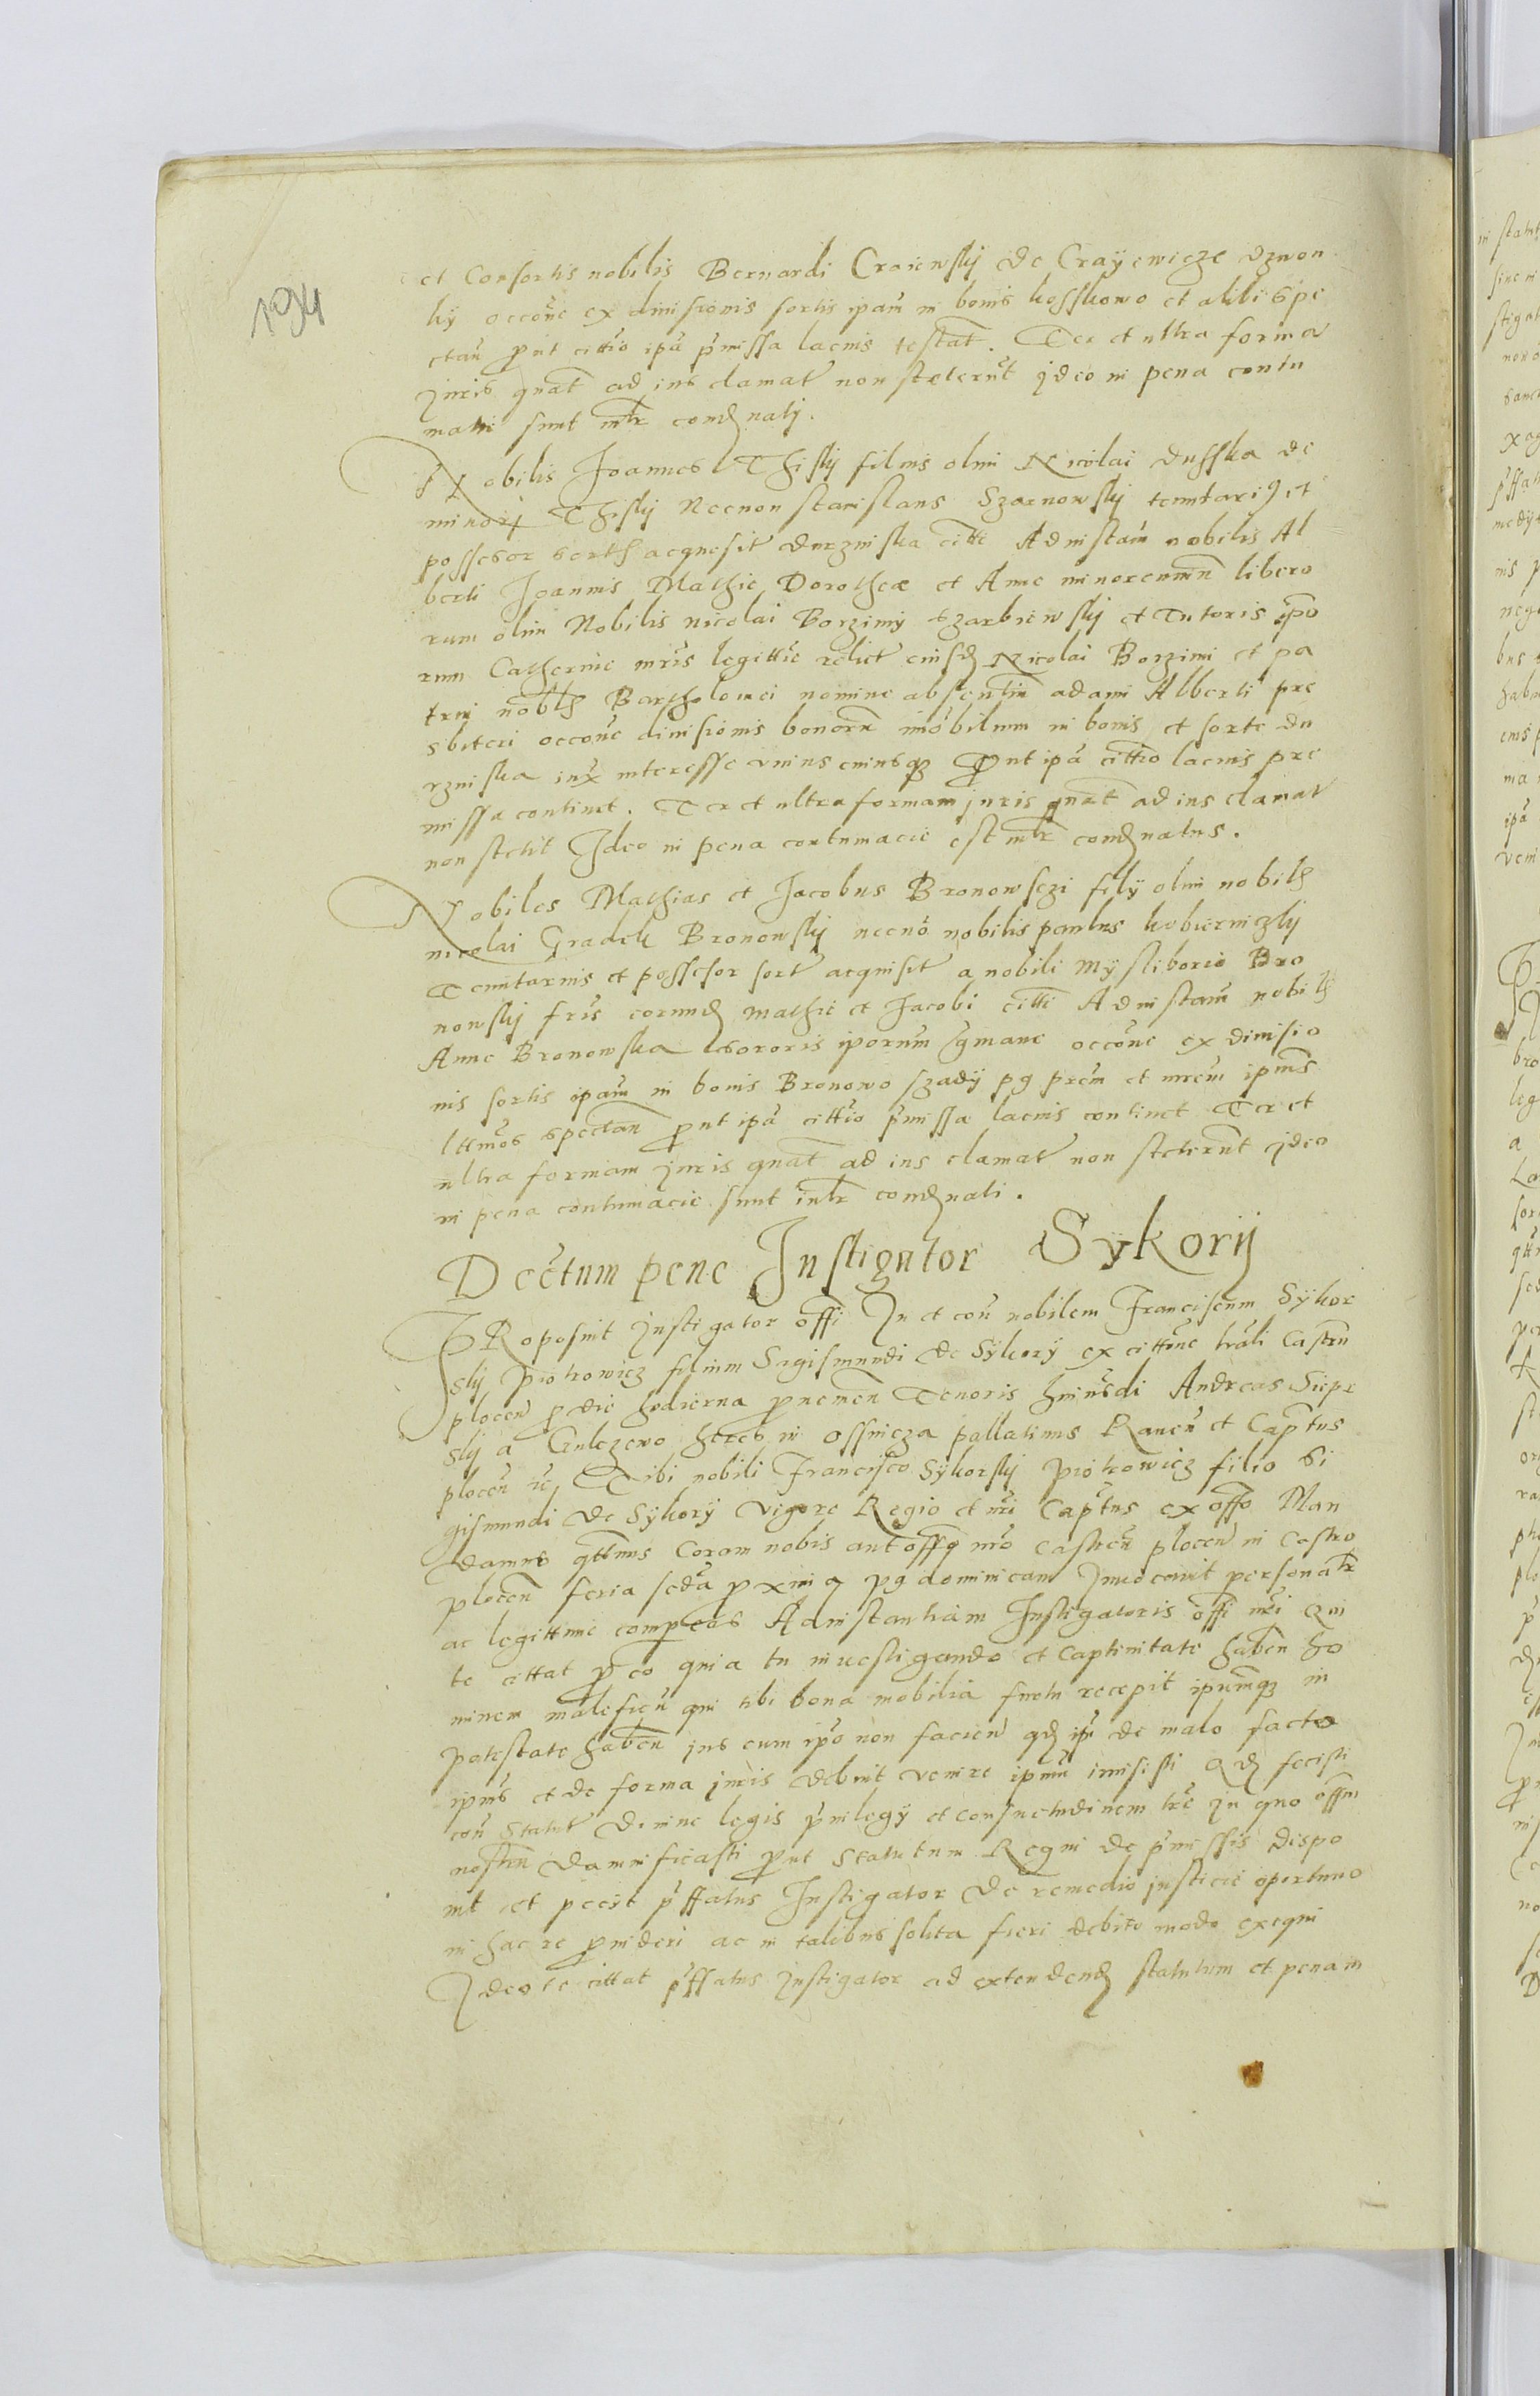 1094
et Consortis nobilis Bernardi Craiewskij de Crayewicze dzwon
kij occone ex diuisionis sortis ipam in bonis kosskowo et alibi spe
ctan put cittio ipa pmissa lacius testat. Ter et ultra forma
Juris quat ad ius clamat non steterut ideo in pena contu
matie sunt intr comdnatj.
Nobilis Joannes Thiskij filius olim Nicolai dusska de
minori Thiskij Necnon stanislaus Szarnowskij tenutari9 et
possesor sortis acquesit durzniska citti Ad instam nobilis Al
berti Joannis Mathie Dorotheæ et Anne minorenum libero
rum olim Nobilis nicolai Borzimij szarbiewskij et Tutoris ipo
rum Catherine mris legittie relict eiusd Nicolai Borzimi et pa
trui nobls Bartholomei nomine absentim adami Alberti pre
sbiteri occone diuisionis bonoru imobilium in bonis et sorte du
rzniska iux interesse vnius cuiusq3 Put ipa cittio lacius pre
missa continet. Ter et ultra formam juris quat ad ius clamat
non stetit Jdeo in pena contumacie est intr comdnatus.
Nobiles Mathias et Jacobus Bronowsczi filij olim nobilis
nicolai Gradek Bronowskij necno nobilis paulus kobierniczkij
Tenutarius et possesor sort acquisit a nobili Mijstiborio Bro
nowskij fris eorumd mathie et Jacobi citti Ad instam nobilis
Anne Bronowska sororis iporum gmane occone ex diuisio
nis sortis ipam in bonis Bronowo szadij pg prem et mrem ipius
lttimos spectan put ipa cittio pmissa lacius continet Ter et
ultra formam juris quat ad ius clamat non steterut ideo
in pena contumacie sunt intr comdnati.
Decretum pene Instigator Sykorij
PRoposuit Instigator offi In et con nobilem Franciscum Sykor
skij Piotrowicz filium Sigismundi de Sykorij ex cittone trali Castrn
plocen p die hodierna puenien Tenoris huiusdi Andreas Siepr
skij a Gulczewo heres in ossnicza pallatinus Rauen et Captus
plocen tc Tibi nobili Francisco Sykorskij Piotrowicz filio Si
gismundi de Sykorij vigore Regio et nri Captus ex offo Man
damus qttenus Coram nobis aut offo nro castren plocen in Castro
plocen feria seda pxima pg dominicam Inuocauit personatr
ac legittime compeas Ad instantiam Instigatoris offi nri Qui
te cittat p eo quia tu inuestigando et captiuitate haben ho
minem maleficu qui tibi bona mobilia furtu recepit ipumq3 in
patestate haben jus cum ipo non facien qd ipi de malo facto
ipius et de forma juris debuit venire ipum imisisti Qd fecisti
con Statut Diuine legis priuilegij et consuetudinem tre In quo offm
nostrm damnificasti put Statutum Regni de pmissis dispo
nit et peciit pffatus Instigator de remedio justicie oportuno
in hac re prouideri ac in talibus solita fieri debito modo exequi
Ideo te cittat pffatus Instigator ad extendend statutum et penam